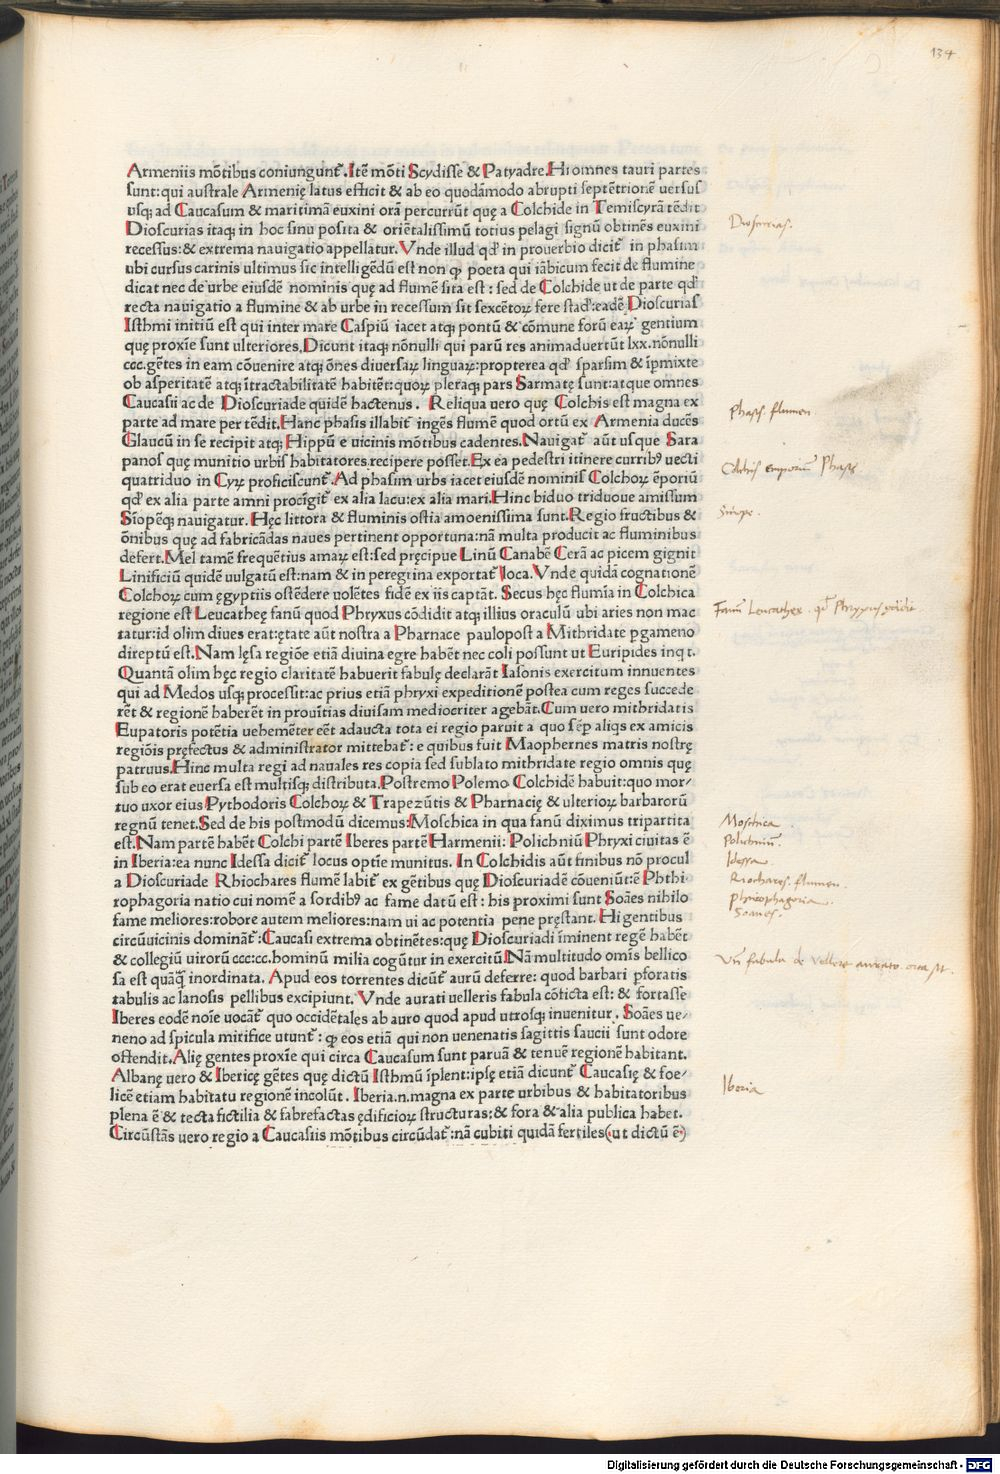 134
Armeniis mōtibus coniungunt᷑. Itē mōti Scydisse & Patyadre. Hi omnes tauri partes
sunt: qui australe Armenię latus efficit & ab eo quodāmodo abrupti septētrionē uersus
usq; ad Caucasum & maritimā euxini orā percurrūt quę a Colchide in Temiscyrā tēdit
Dioscurias itaq; in hoc sinu posita & oriētalissimū totius pelagi signū obtinēs euxini
recessus: & extrema nauigatio appellatur. Vnde illud qđ in prouerbio dicit᷑ in phasim
ubi cursus carinis ultimus sic intelligēdū est non ꝙ poeta qui iābicum fecit de flumine
dicat nec de urbe eiusdē nominis quę ad flumē sita est: sed de Colchide ut de parte qđ
recta nauigatio a flumine & ab urbe in recessum sit sexcētoꝝ fere stađ: eadē Dioscurias
Isthmi initiū est qui inter mare Caspiū iacet atq; pontū & cōmune forū eaꝝ gentium
quę proxīe sunt ulteriores. Dicunt itaq; nōnulli qui parū res animaduertūt lxx. nōnulli
ccc. gētes in eam cōuenire atq; ōnes diuersaꝝ linguaꝝ: propterea qđ sparsim & īpmixte
ob asperitatē atq; ītractabilitatē habitēt: quoꝝ pleraq; pars Sarmatę sunt: atque omnes
Caucasii ac de Dioscuriade quidē hactenus. Reliqua uero quę Colchis est magna ex
parte ad mare per tēdit. Hanc phasis illabit᷑ ingēs flumē quod ortū ex Armenia ducēs
Glaucū in se recipit atq; Hippū e uicinis mōtibus cadentes. Nauigat᷑ aūt usque Sara
panos quę munitio urbis habitatores recipere posset. Ex ea pedestri itinere curribꝰ uecti
quatriduo in Cyꝝ proficiscunt᷑. Ad phasim urbs iacet eiusdē nominis Colchoꝝ ēporiū
qđ ex alia parte amni procīgit᷑ ex alia lacu: ex alia mari. Hinc biduo triduoue amissum
Sīopēq; nauigatur. Hęc littora & fluminis ostia amoenissima sunt. Regio fructibus &
ōnibus quę ad fabricādas naues pertinent opportuna: nā multa producit ac fluminibus
defert. Mel tamē frequētius amaꝝ est: sed pręcipue Linū Canabē Cerā ac picem gignit
Linificiū quidē uulgatū est: nam & in peregrina exportat᷑ loca. Vnde quidā cognationē
Colchoꝝ cum ęgyptiis ostēdere uolētes fidē ex iis captāt. Secus hęc flumīa in Colchica
regione est Leucatheę fanū quod Phryxus cōdidit atq; illius oraculū ubi aries non mac
tatur: id olim diues erat: ętate aūt nostra a Pharnace paulopost a Mithridate pgameno
direptū est. Nam lęsa regiōe etiā diuina egre habēt nec coli possunt ut Euripides inqt.
Quantā olim hęc regio claritatē habuerit fabulę declarāt Iasonis exercitum innuentes
qui ad Medos usq; processit: ac prius etiā phryxi expeditionē postea cum reges succede
rēt & regionē haberēt in prouītias diuisam mediocriter agebāt. Cum uero mithridatis
Eupatoris potētia uehemēter eēt adaucta tota ei regio paruit a quo sēp aliqs ex amicis
regiōis pręfectus & administrator mittebat᷑: e quibus fuit Maophernes matris nostrę
patruus. Hinc multa regi ad nauales res copia sed sublato mithridate regio omnis quę
sub eo erat euersa est multisq; distributa. Postremo Polemo Colchidē habuit: quo mor⸗
tuo uxor eius Pythodoris Colchoꝝ & Trapezūtis & Pharnacię & ulterioꝝ barbarorū
regnū tenet. Sed de his postmodū dicemus: Moschica in qua fanū diximus tripartita
est. Nam partē habēt Colchi partē Iberes partē Harmenii: Polichniū Phryxi ciuitas ē
in Iberia: ea nunc Idessa dicit᷑ locus optīe munitus. In Colchidis aūt finibus nō procul
a Dioscuriade Rhiochares flumē labit᷑ ex gētibus quę Dioscuriadē cōueniūt: ē Phthi⸗
rophagoria natio cui nomē a sordibꝰ ac fame datū est: his proximi sunt Soāes nihilo
fame meliores: robore autem meliores: nam ui ac potentia pene pręstant. Hi gentibus
circūuicinis domināt᷑: Caucasi extrema obtinētes: quę Dioscuriadi īminent regē habēt
& collegiū uirorū ccc: cc. hominū milia cogūtur in exercitū Nā multitudo omīs bellico
sa est quāq̄ inordinata. Apud eos torrentes dicūt᷑ aurū deferre: quod barbari ꝑforatis
tabulis ac lanosis pellibus excipiunt. Vnde aurati uelleris fabula cōticta est: & fortasse
Iberes eodē noīe uocāt᷑ quo occidētales ab auro quod apud utrosq; inuenitur. Soāes ue⸗
neno ad spicula mirifice utunt᷑: ꝙ eos etiā qui non uenenatis sagittis saucii sunt odore
ostendit. Alię gentes proxīe qui circa Caucasum sunt paruā & tenuē regionē habitant.
Albanę uero & Ibericę gētes quę dictū Isthmū īplent: ipsę etiā dicunt᷑ Caucasię & foe⸗
licē etiam habitatu regionē incolūt. Iberia .n. magna ex parte urbibus & habitatoribus
plena ē & tecta fictilia & fabrefactas ędificioꝝ structuras; & fora & alia publica habet.
Circūstās uero regio a Caucasiis mōtibus circūdat᷑: nā cubiti quidā fertiles (ut dictū ē)
Dioscurias.
Phasis flumen
Colchis emporium Phasis
Sinope.
Fanū Leucathee qđ Phryxus cōdidit
Moschica
Polichnium.
Idessa
Riochares. flumen.
Phtirophagoria.
Soanes.
Vn fabula de vellere aurato orta sit.
Iberia
Digitalisierung gefördert durch die Deutsche Forschungsgemeinschaft - DFG